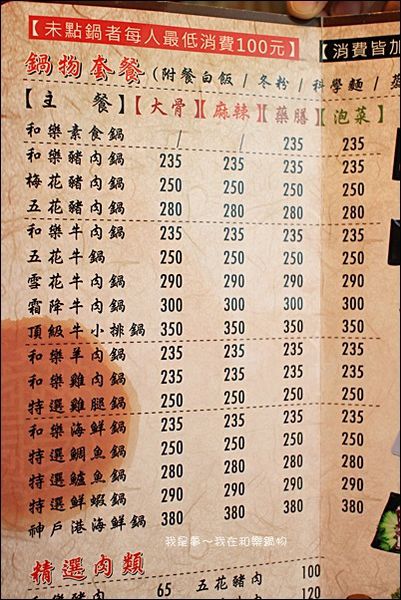 【未點鍋者每人最低消費100元】
【消費皆加
鍋物套餐 (附餐白飯 / 冬粉 / 科學麵 /
【主 餐】【大骨】【麻辣】【藥膳】【泡菜】
和樂素食鍋 / / 235 235
和樂豬肉鍋 235 235 235 235
梅花豬肉鍋 250 250 250 250
五花豬肉鍋 280 280 280 280
和樂牛肉鍋 235 235 235 235
五花牛鍋 250 250 250 250
雪花牛肉鍋 290 290 290 290
霜降牛肉鍋 300 300 300 300
頂級牛小排鍋 350 350 350 350
和樂羊肉鍋 235 235 235 235
和樂雞肉鍋 235 235 235 235
特選雞腿鍋 250 250 250 250
和樂海鮮鍋 235 235 235 235
特選鯛魚鍋 250 250 250 250
特選鱸魚鍋 280 280 280 280
特選鮮蝦鍋 290 290 290 290
神戶港海鮮鍋 380 380 380 380
我是事～我在和樂鍋物
精選肉類
和樂豬肉 65 五花豬肉 100
120